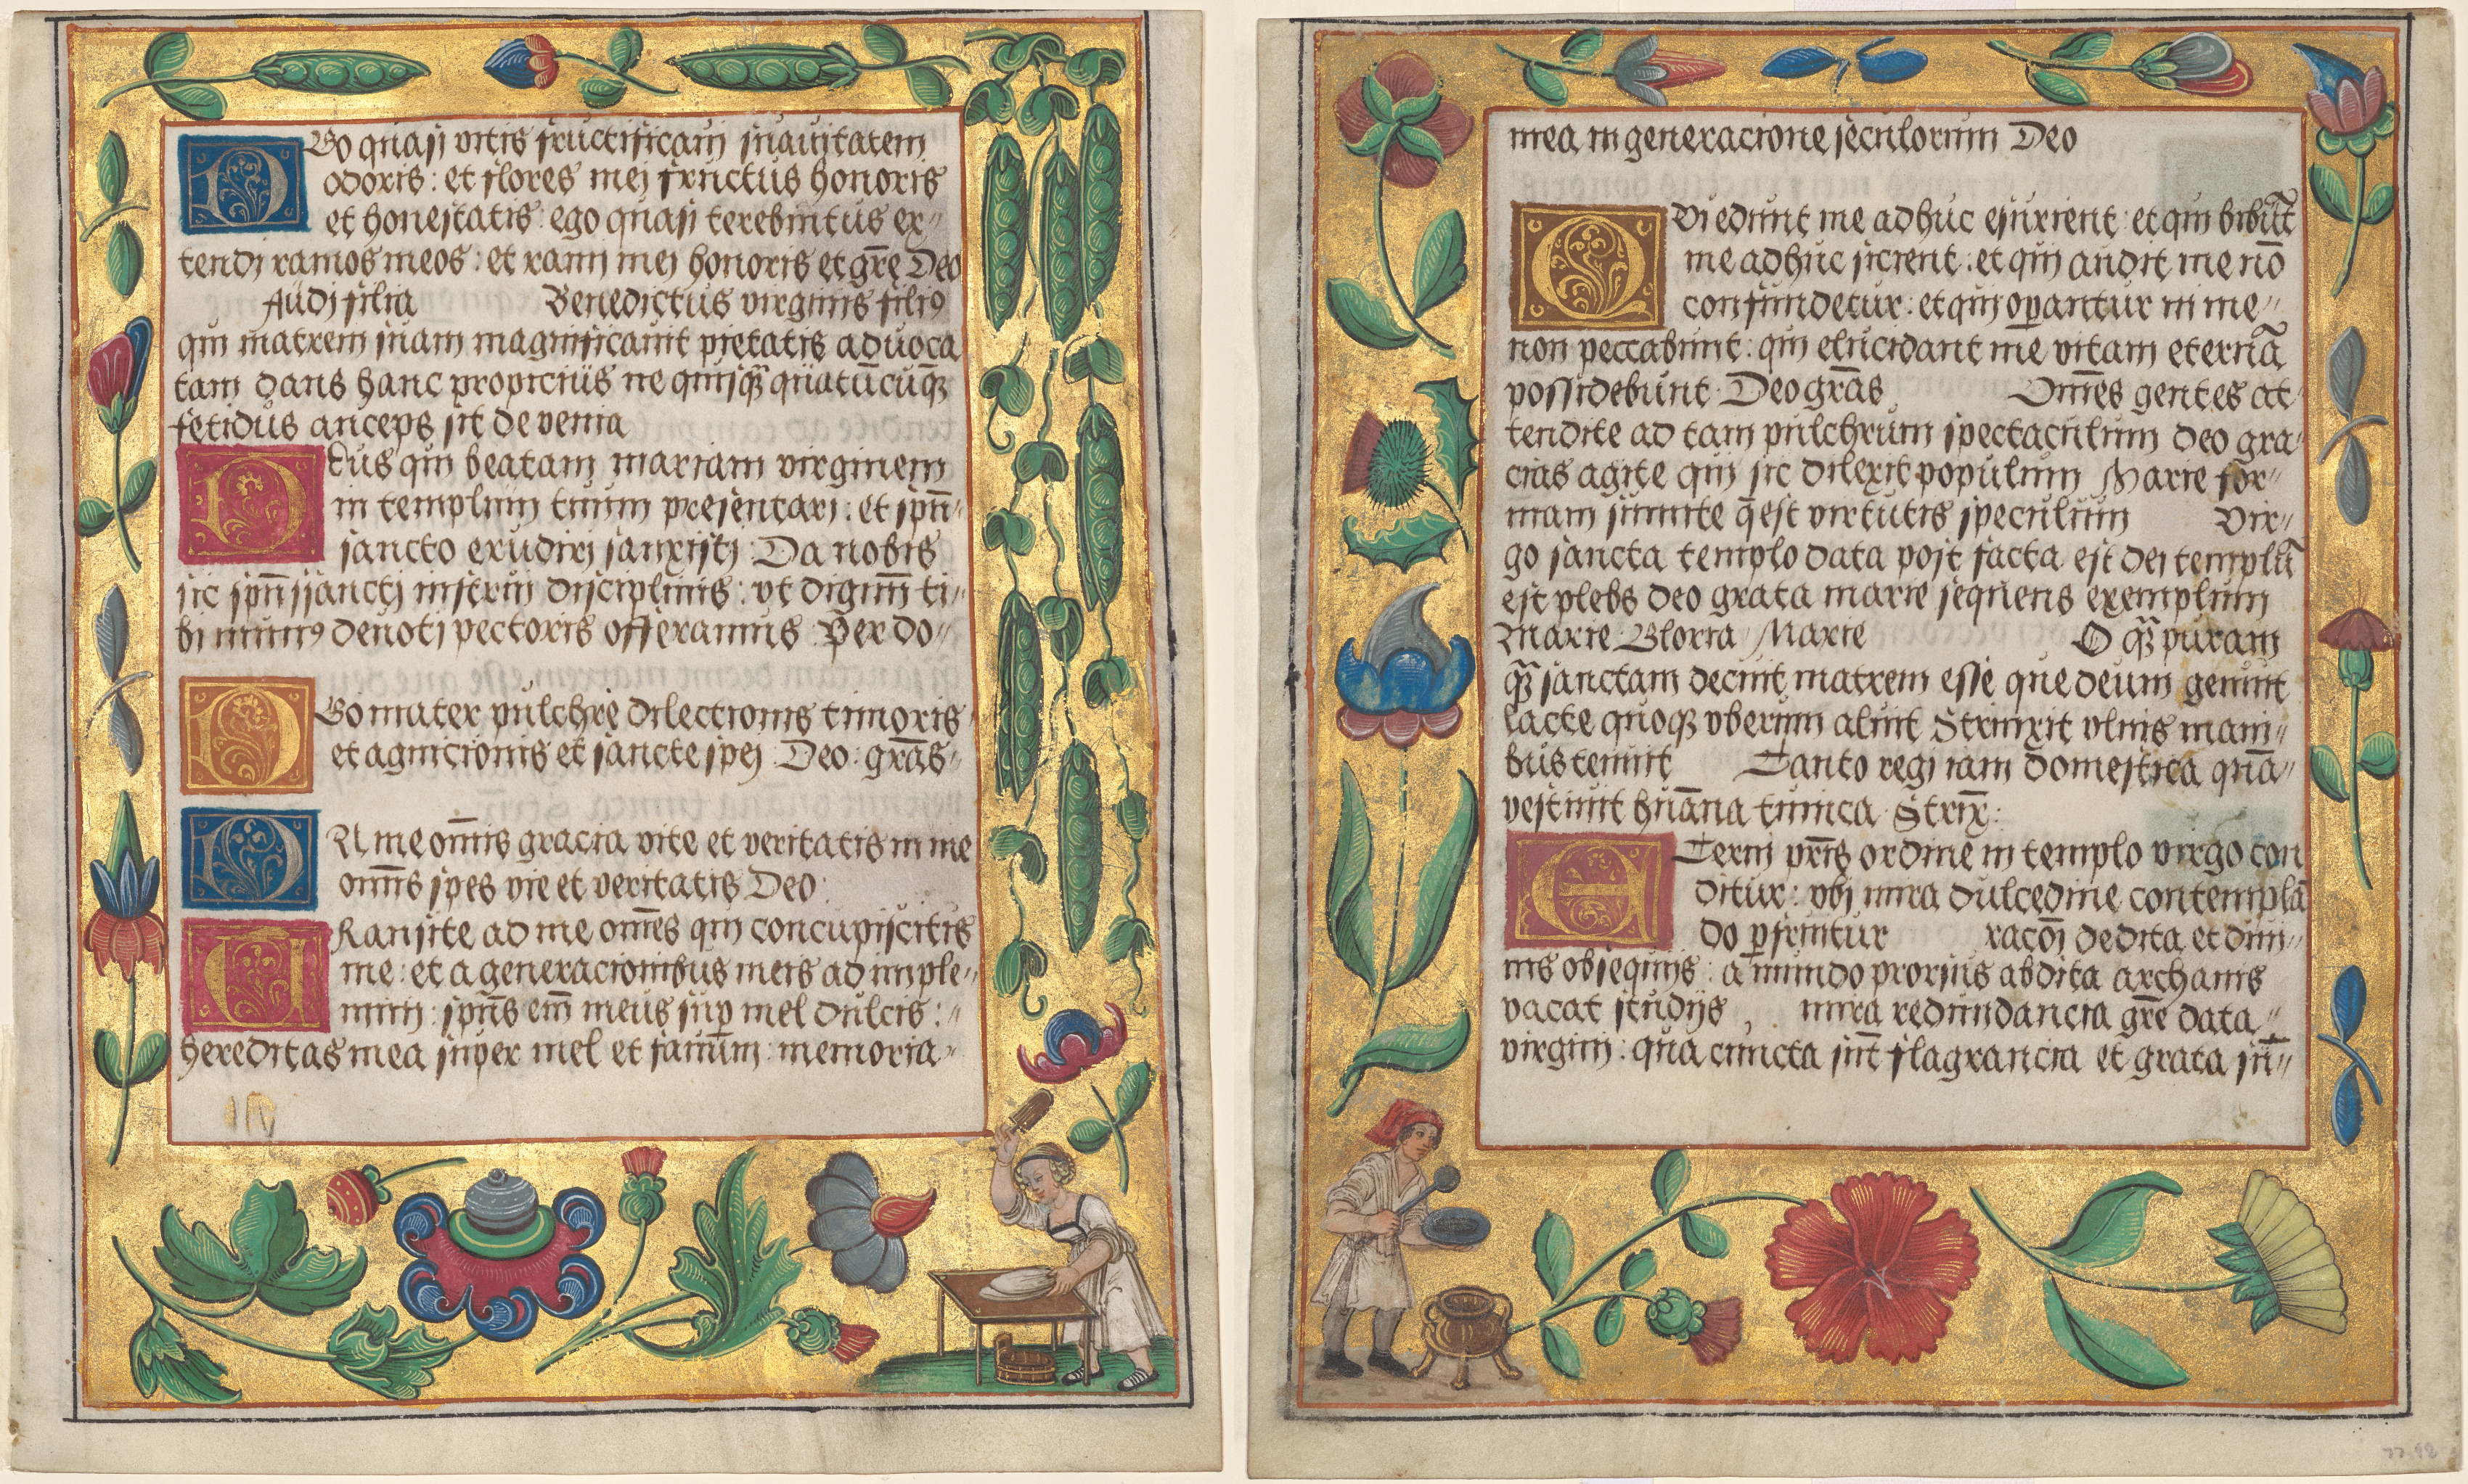 EGo quasi vitis fructificavi suavitatem
odoris : et flores mei fructus honoris
et honestatis : ego quasi terebintus ex-
tendi ramos meos : et rami mei honoris et grē Deo
Audi filia Benedictus virginis filiꝰ
qui matrem suam magnificavit pietatis advoca
tam dans hanc propicius ne quisq̄ quatūcuq̄
fetidus anceps sit de venia
DEus qui beatam mariam virginem
in templum tuum presentari : et spū-
sancto erudiri sanxisti : Da nobis
sic spūssancti instrui disciplinis : ut dignū ti-
bi munꝰ devoti pectoris offeramus Per do-
EGo mater pulchre dilectionis timoris
et agnicionis et sancte spei Deo : grās-
IN me omīs gracia vite et veritatis in me
omīs spes vie et veritatis Deo :
TRansite ad me omēs qui concupiscitis
me : et a generacionibus meis ad imple-
mini : spūs em̄ meus sup mel dulcis :
hereditas mea super mel et favum : memoria-
mea in generacione seculorum Deo
QVi edunt me adhuc esurient : et qui bibūt
me adhuc sicient : et qui audit me nō
confundetur : et qui operantur in me-
non peccabunt : qui elucidant me vitam eternā
possidebunt Deo grās Omēs gentes at-
tendite ad tam pulchrum spectaculum deo gra-
cias agite qui sic dilexit populum Marie for-
mam sumite q̄ est virtutis speculum Vir-
go sancta templo data post facta est dei templū
est plebs deo grata marie sequens exemplum
Marie Gloria Marie O q̄ puram
q̄ sanctam decuit matrem esse que deum genuit
lacte quoqꝫ uberum aluit Strinxit ulnis mani-
bus tenuit Tanto regi iam domestica quā-
vestivit hūana tunica Strix̄ :
ETerni pr̄is ordine in templo virgo con
ditur : ubi mira dulcedine contemplā
do pfruitur racōi dedita et divi-
nis obsequiis : a mundo prorsus abdita archanis
vacat studiis mira redundancia grē data
virgini : qua cuncta sūt flagrancia et grata sū-